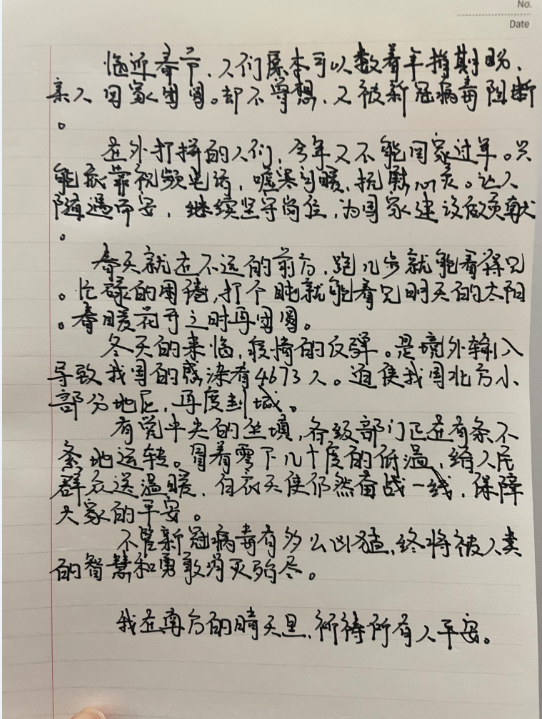 No.
Date
临近春节,人们原本可以数着年指期盼,
亲人回家团圆。却不曾想,又被新冠病毒阻断
。
在外打拼的人们,今年又不能回家过年。只
能依靠视频电话,嘘寒问暖,抗击心灵。让人
随遇而安,继续坚守岗位,为国家建设做贡献
。
春天就在不远的前方,跑几步就能看得见
。忙碌的周德,打个盹就能看见明天的太阳
。春暖花开之时再团圆。
冬天的来临,疫情的反弹。是境外输入
导致我国的感染有4673人。迫使我国北方小
部分地区,再度封城。
有党中央的坐镇,各级部门正在有条不
紊地运转。冒着零下几十度的低温,给人民
群众送温暖,白衣天使仍然奋战一线,保障
大家的平安。
不管新冠病毒有多么凶猛,终将被人类
的智慧和勇敢消灭殆尽。
我在南方的晴天里,祈祷所有人平安。